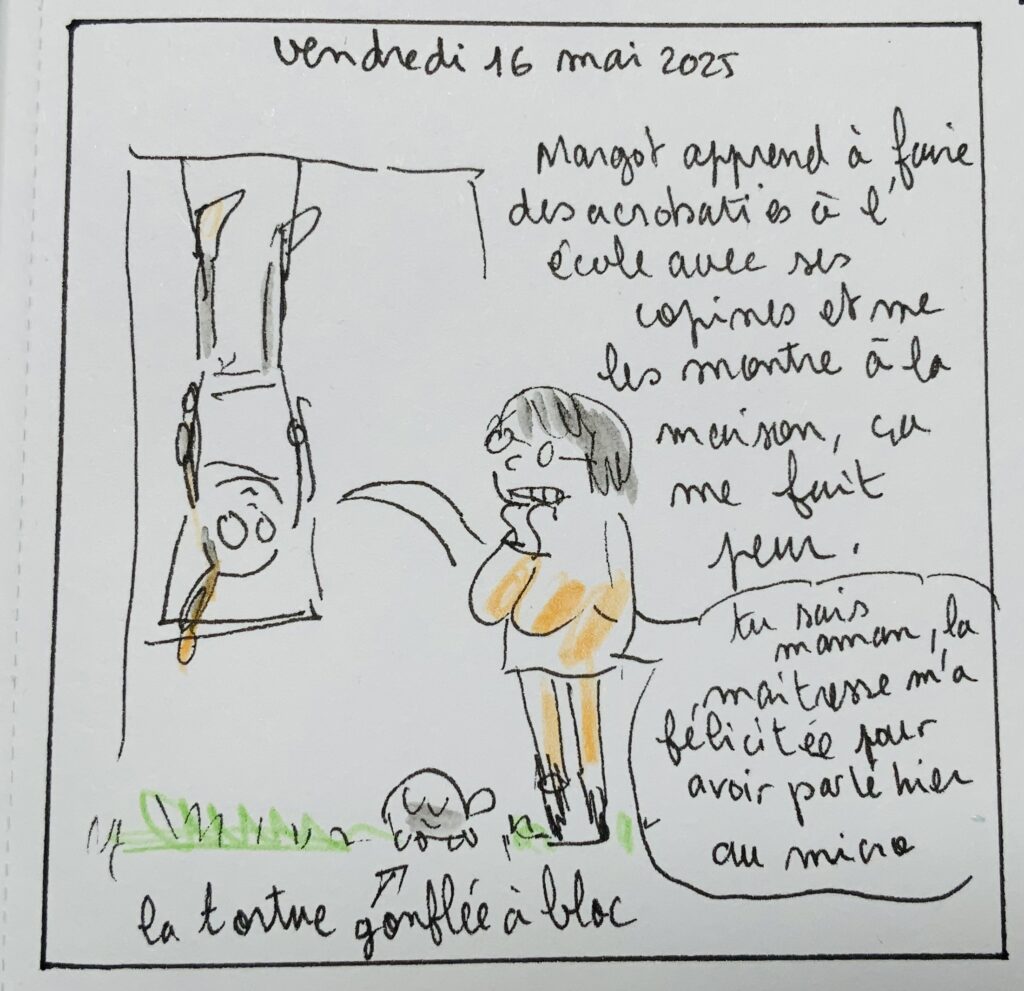 vendredi 16 mai 2025
Margot apprend à faire
des acrobaties à l'
école avec ses
copines et me
les montre à la
maison, ça
me fait
peur.
tu sais
maman, la
maîtresse m'a
félicitée pour
avoir parlé hier
au micro
la tortue gonflée à bloc